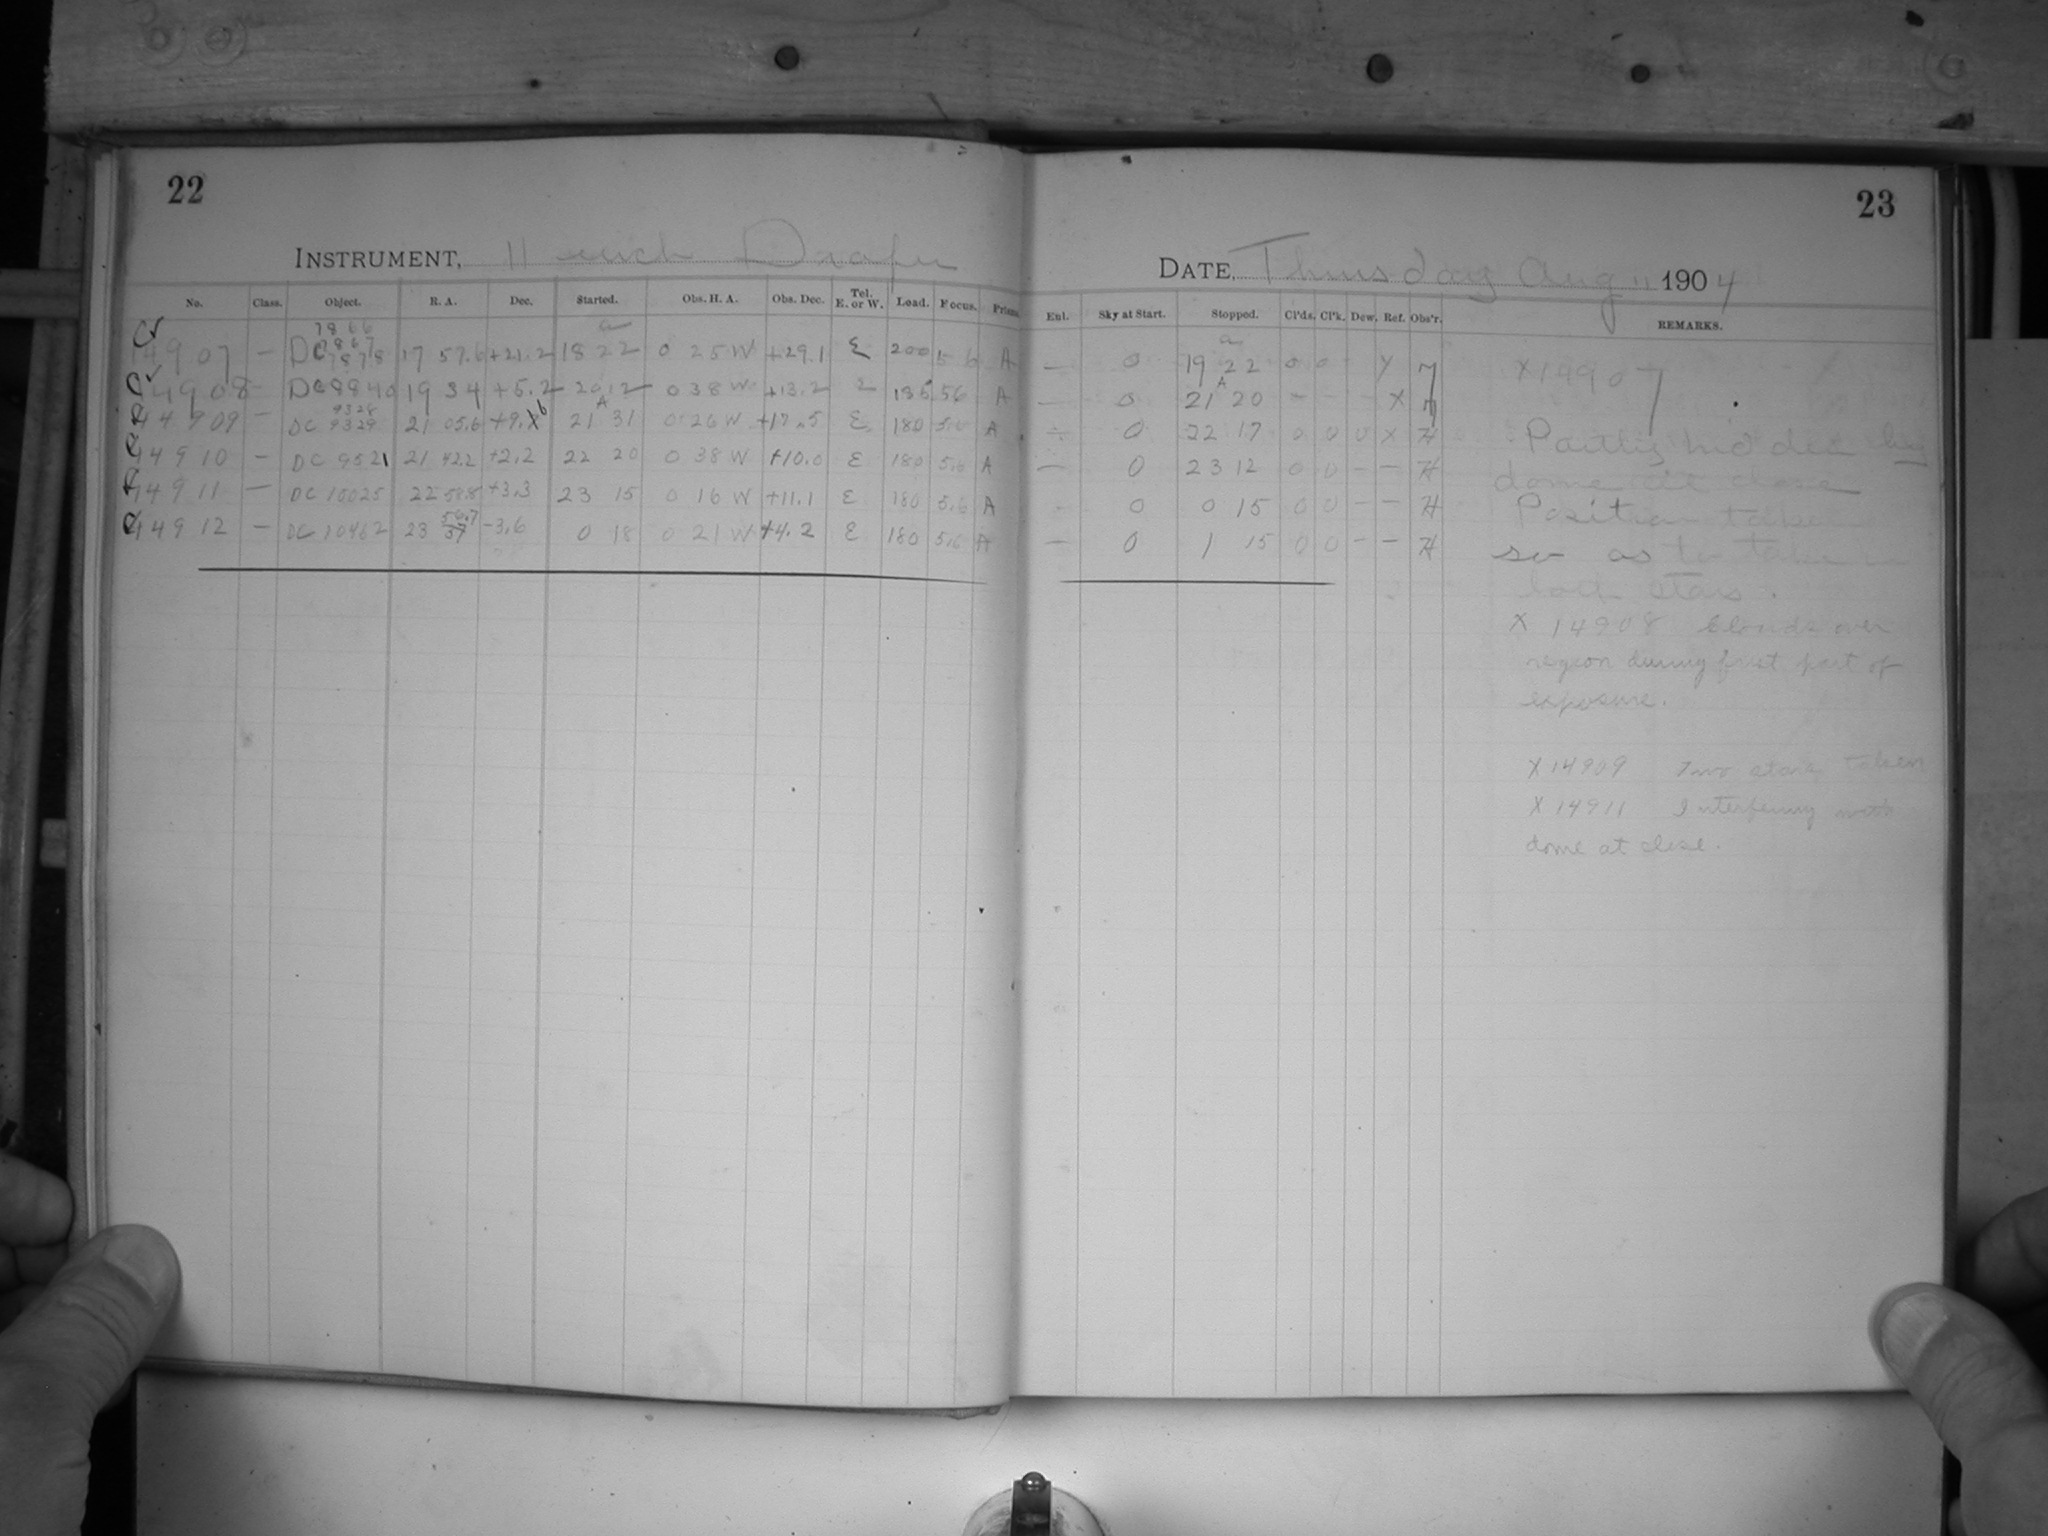 22
INSTRUMENT, 11 inch Draper
No. Class. Object. R. A. Dec. Started. Obs. H. A. Obs. Dec. Tel. E. or W. Load. Focus. Prism.
7866
7867
C 14907 — DC 7878 17 57.6 +21.2 18 22 0 25 W +29.1 E 200 56 A
C 14908 — DC 8840 19 34 +5.2 20 12 0 38 W +13.2 E 185 56 A
9328
C 14909 — DC 9329 21 05.6 +9.6 21 31 0 26 W +17.5 E 180 5.6 A
C 14910 — DC 9521 21 42.2 +2.2 22 20 0 38 W +10.0 E 180 5.6 A
C 14911 — DC 10025 22 58.8 +3.3 23 15 0 16 W +11.1 E 180 5.6 A
56.7
C 14912 — DC 10462 23 57 -3.6 0 18 0 21 W +4.2 E 180 5.6 A
23
DATE, Thursday Aug 11 1904
Enl. Sky at Start. Stopped. Cl'ds. Cl'k. Dew. Ref. Obs'r. REMARKS.
— 0 19 22 0 0 - Y
— 0 21 20 - - - X
0 22 17 0 0 0 X H
— 0 23 12 0 0 - - H
- 0 0 15 0 0 - - H
— 0 1 15 0 0 - - H
X 14907
Partly hidden by
dome at close
Position taken
so as to take in
both stars.
X 14908 Clouds over
region during first part of
exposure.
X 14909 Two stars taken
X 14911 Interfering with
dome at close.